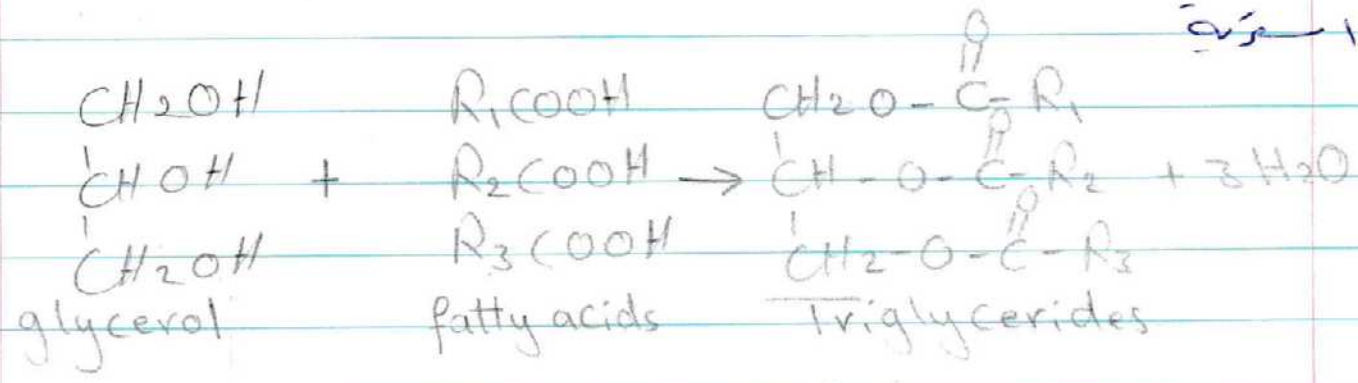 استرة
O
CH2OH R1COOH CH2O-C-R1
O
CHOH + R2COOH → CH-O-C-R2 + 3H2O
O
CH2OH R3COOH CH2-O-C-R3
glycerol fatty acids Triglycerides